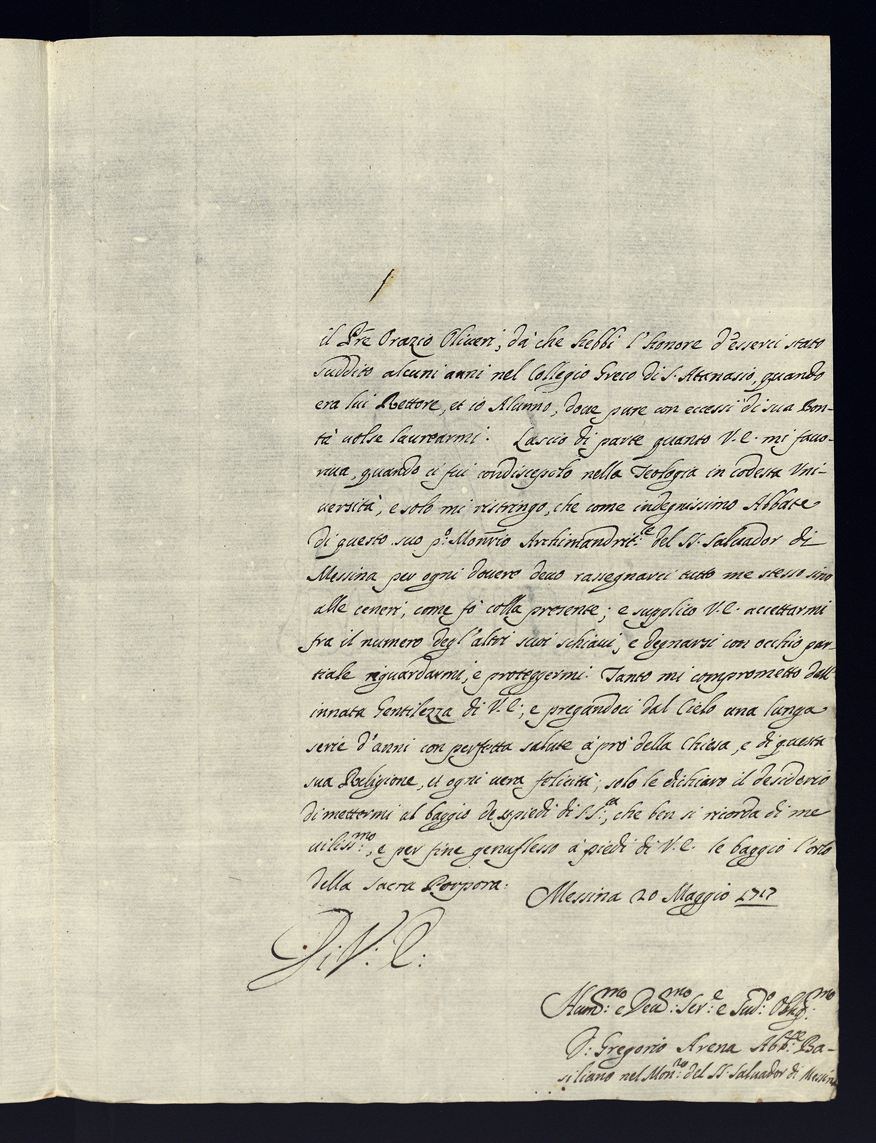 il Pre Orazio Oliveri, dà che hebbi l'honore d'esserci stato
suddito alcuni anni nel Collegio Greco di S. Atanasio, quando
era lui Rettore, et io Alunno, dove pure con eccessi di sua Bon-
tà volse laurearmi. Lascio di parte quanto V.E. mi favo-
riva, quando ci fui condiscepolo nella Teologia in codesta Uni-
versità, e solo mi ristringo, che come indegnissimo Abbate
di questo suo po. Monrio Archimandrit:le del SS. Salvador di
Messina per ogni dovere devo rassegnarci tutto me stesso sino
alle ceneri, come fò colla presente; e supplico V.E. accettarmi
fra il numero degl'altri suoi schiavi, e degnarsi con occhio par-
tiale riguardarmi, e proteggermi. Tanto mi comprometto dall'
innata Gentilezza di V.E., e pregandoci dal Cielo una lunga
serie d'anni con perfetta salute à prò della Chiesa, e di questa
sua Religione, et ogni vera felicità, solo le dichiaro il desiderio
di mettermi al baggio de piedi di S.S.tà, che ben si ricorda di me
viliss:mo, e per fine genuflesso à piedi di V.E. le baggio l'orlo
della Sacra Porpora. Messina 20 Maggio 1717
Di V: E:
Hum:mo e Dev:mo Ser:e e Sud:o Oblig:mo
D: Gregorio Arena Abb:te Ba-
siliano nel Mon:ro del SS. Salvador di Messina